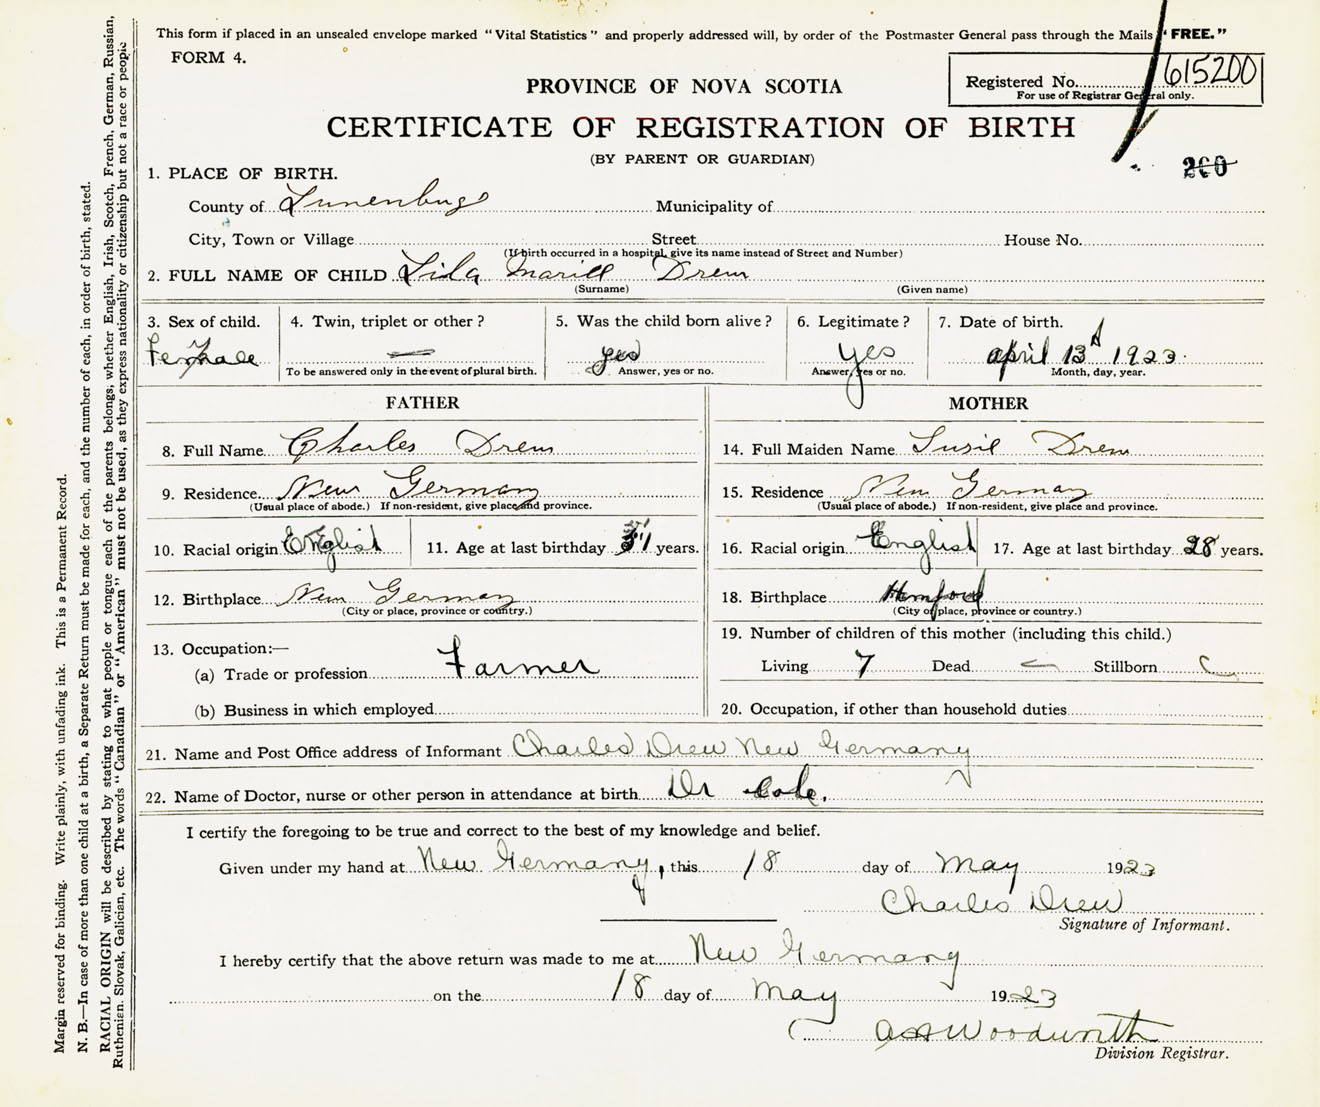 This form if placed in an unsealed envelope marked "Vital Statistics" and properly addressed will, by order of the Postmaster General pass through the Mails "FREE."
FORM 4.
Registered No. 615200
For use of Registrar General only.
PROVINCE OF NOVA SCOTIA
CERTIFICATE OF REGISTRATION OF BIRTH
(BY PARENT OR GUARDIAN)
200
1. PLACE OF BIRTH.
County of Lunenburg Municipality of
City, Town or Village Street House No.
(If birth occurred in a hospital, give its name instead of Street and Number)
2. FULL NAME OF CHILD Lila Marill Drew
(Surname) (Given name)
3. Sex of child. 4. Twin, triplet or other? 5. Was the child born alive? 6. Legitimate? 7. Date of birth.
Female — yes yes april 13 1923
To be answered only in the event of plural birth. Answer, yes or no. Answer, yes or no. Month, day, year.
FATHER MOTHER
8. Full Name Charles Drew 14. Full Maiden Name Susil Drew
9. Residence New Germany 15. Residence New Germany
(Usual place of abode.) If non-resident, give place and province. (Usual place of abode.) If non-resident, give place and province.
10. Racial origin English 11. Age at last birthday years. 16. Racial origin English 17. Age at last birthday 28 years.
12. Birthplace New Germany 18. Birthplace Hemford
(City or place, province or country.) (City or place, province or country.)
13. Occupation:— 19. Number of children of this mother (including this child.)
(a) Trade or profession Farmer Living 7 Dead — Stillborn
(b) Business in which employed 20. Occupation, if other than household duties
21. Name and Post Office address of Informant Charles Drew New Germany
22. Name of Doctor, nurse or other person in attendance at birth Dr Cole.
I certify the foregoing to be true and correct to the best of my knowledge and belief.
Given under my hand at New Germany, this 18 day of May 1923
Charles Drew
Signature of Informant.
I hereby certify that the above return was made to me at New Germany
on the 18 day of May 1923
Woodworth
Division Registrar.
Margin reserved for binding. Write plainly, with unfading ink. This is a Permanent Record.
N. B.—In case of more than one child at a birth, a Separate Return must be made for each, and the number of each, in order of birth, stated.
RACIAL ORIGIN will be described by stating to what people or tongue each of the parents belongs, whether English, Irish, Scotch, French, German, Russian,
Ruthenian, Slovak, Galician, etc. The words "Canadian" or "American" must not be used, as they express nationality or citizenship but not a race or people